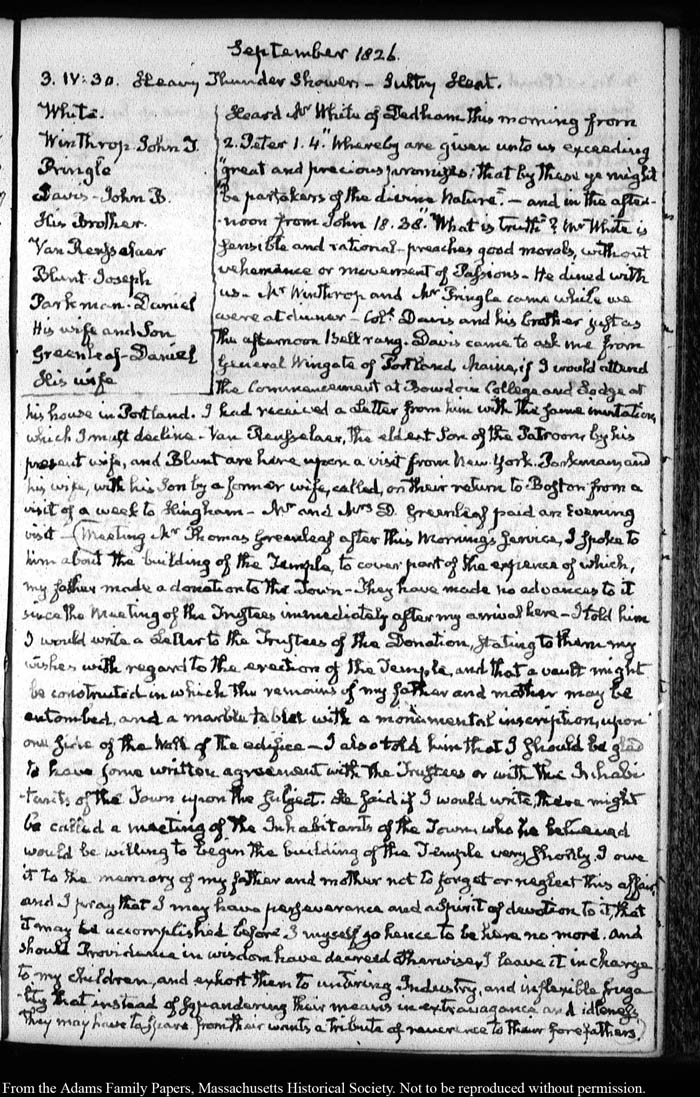 September 1826.
3. IV:30. Heavy Thunder Shower - Sultry Heat.
White.
Winthrop John T.
Pringle
Davis - John B.
His Brother.
Van Rensselaer
Blunt Joseph
Parkman. Daniel
His wife and Son
Greenleaf - Daniel
His wife
Heard Mr White of Dedham this morning from
2. Peter 1. 4 "Whereby are given unto us exceeding
"great and precious promises: that by these ye might
"be partakers of the divine Nature." - and in the after-
-noon from John 18. 38. "What is truth"? Mr White is
sensible and rational - preaches good morals, without
vehemence or movement of Passions - He dined with
us - Mr Winthrop and Mr Pringle came while we
were at dinner - Colt. Davis and his brother just as
the afternoon Bell rang. Davis came to ask me from
General Wingate of Portland, Maine, if I would attend
the Commencement at Bowdoin College and Lodge at
his house in Portland. I had received a Letter from him with the same invitation,
which I must decline - Van Rensselaer, the eldest Son of the Patroon by his
present wife, and Blunt are here upon a visit from New-York. Parkman, and
his wife, with his Son by a former wife, called, on their return to Boston from a
visit of a week to Hingham - Mr and Mrs D. Greenleaf paid an Evening
visit - (Meeting Mr Thomas Greenleaf after this Morning's service, I spoke to
him about the building of the Temple, to cover part of the expence of which,
my father made a donation to the Town - They have made no advances to it
since the Meeting of the Trustees immediately after my arrival here - I told him
I would write a Letter to the Trustees of the Donation, stating to them my
wishes with regard to the erection of the Temple, and that a vault might
be constructed in which the remains of my father and mother may be
entombed, and a marble tablet with a monumental inscription, upon
one side of the Wall of the edifice - I also told him that I should be glad
to have some written agreement with the Trustees or with the Inhabi-
-tants of the Town upon the subject. He said if I would write, there might
be called a meeting of the Inhabitants of the Town, who he believed
would be willing to begin the building of the Temple very shortly. I owe
it to the memory of my father and mother not to forget or neglect this affair,
and I pray that I may have perseverance and a Spirit of devotion to it, that
it may be accomplished before I myself go hence to be here no more. And
should Providence in wisdom have decreed otherwise, I leave it in charge
to my children, and exhort them to untiring Industry, and inflexible fruga-
-lity that instead of squandering their means in extravagance and idleness
they may have to spare from their wants a tribute of reverence to their forefathers.)
From the Adams Family Papers, Massachusetts Historical Society. Not to be reproduced without permission.